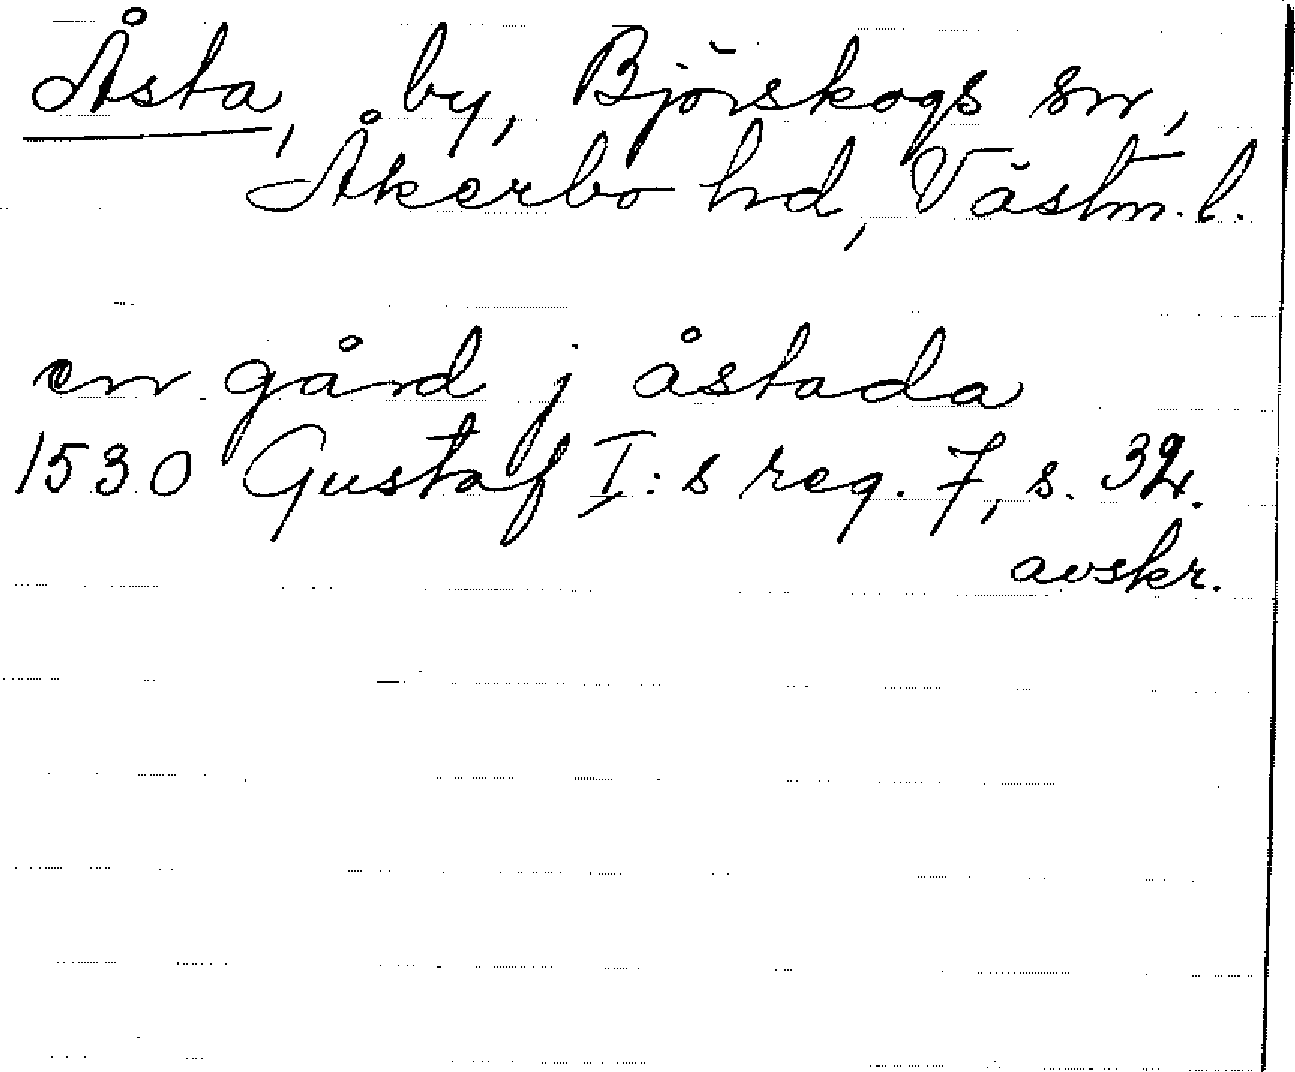 Åsta, by, Björskogs sn,
Åkerbo hd, Västm. l.
en gård j åstada
1530 Gustaf I:s reg. 7, s. 32.
avskr.